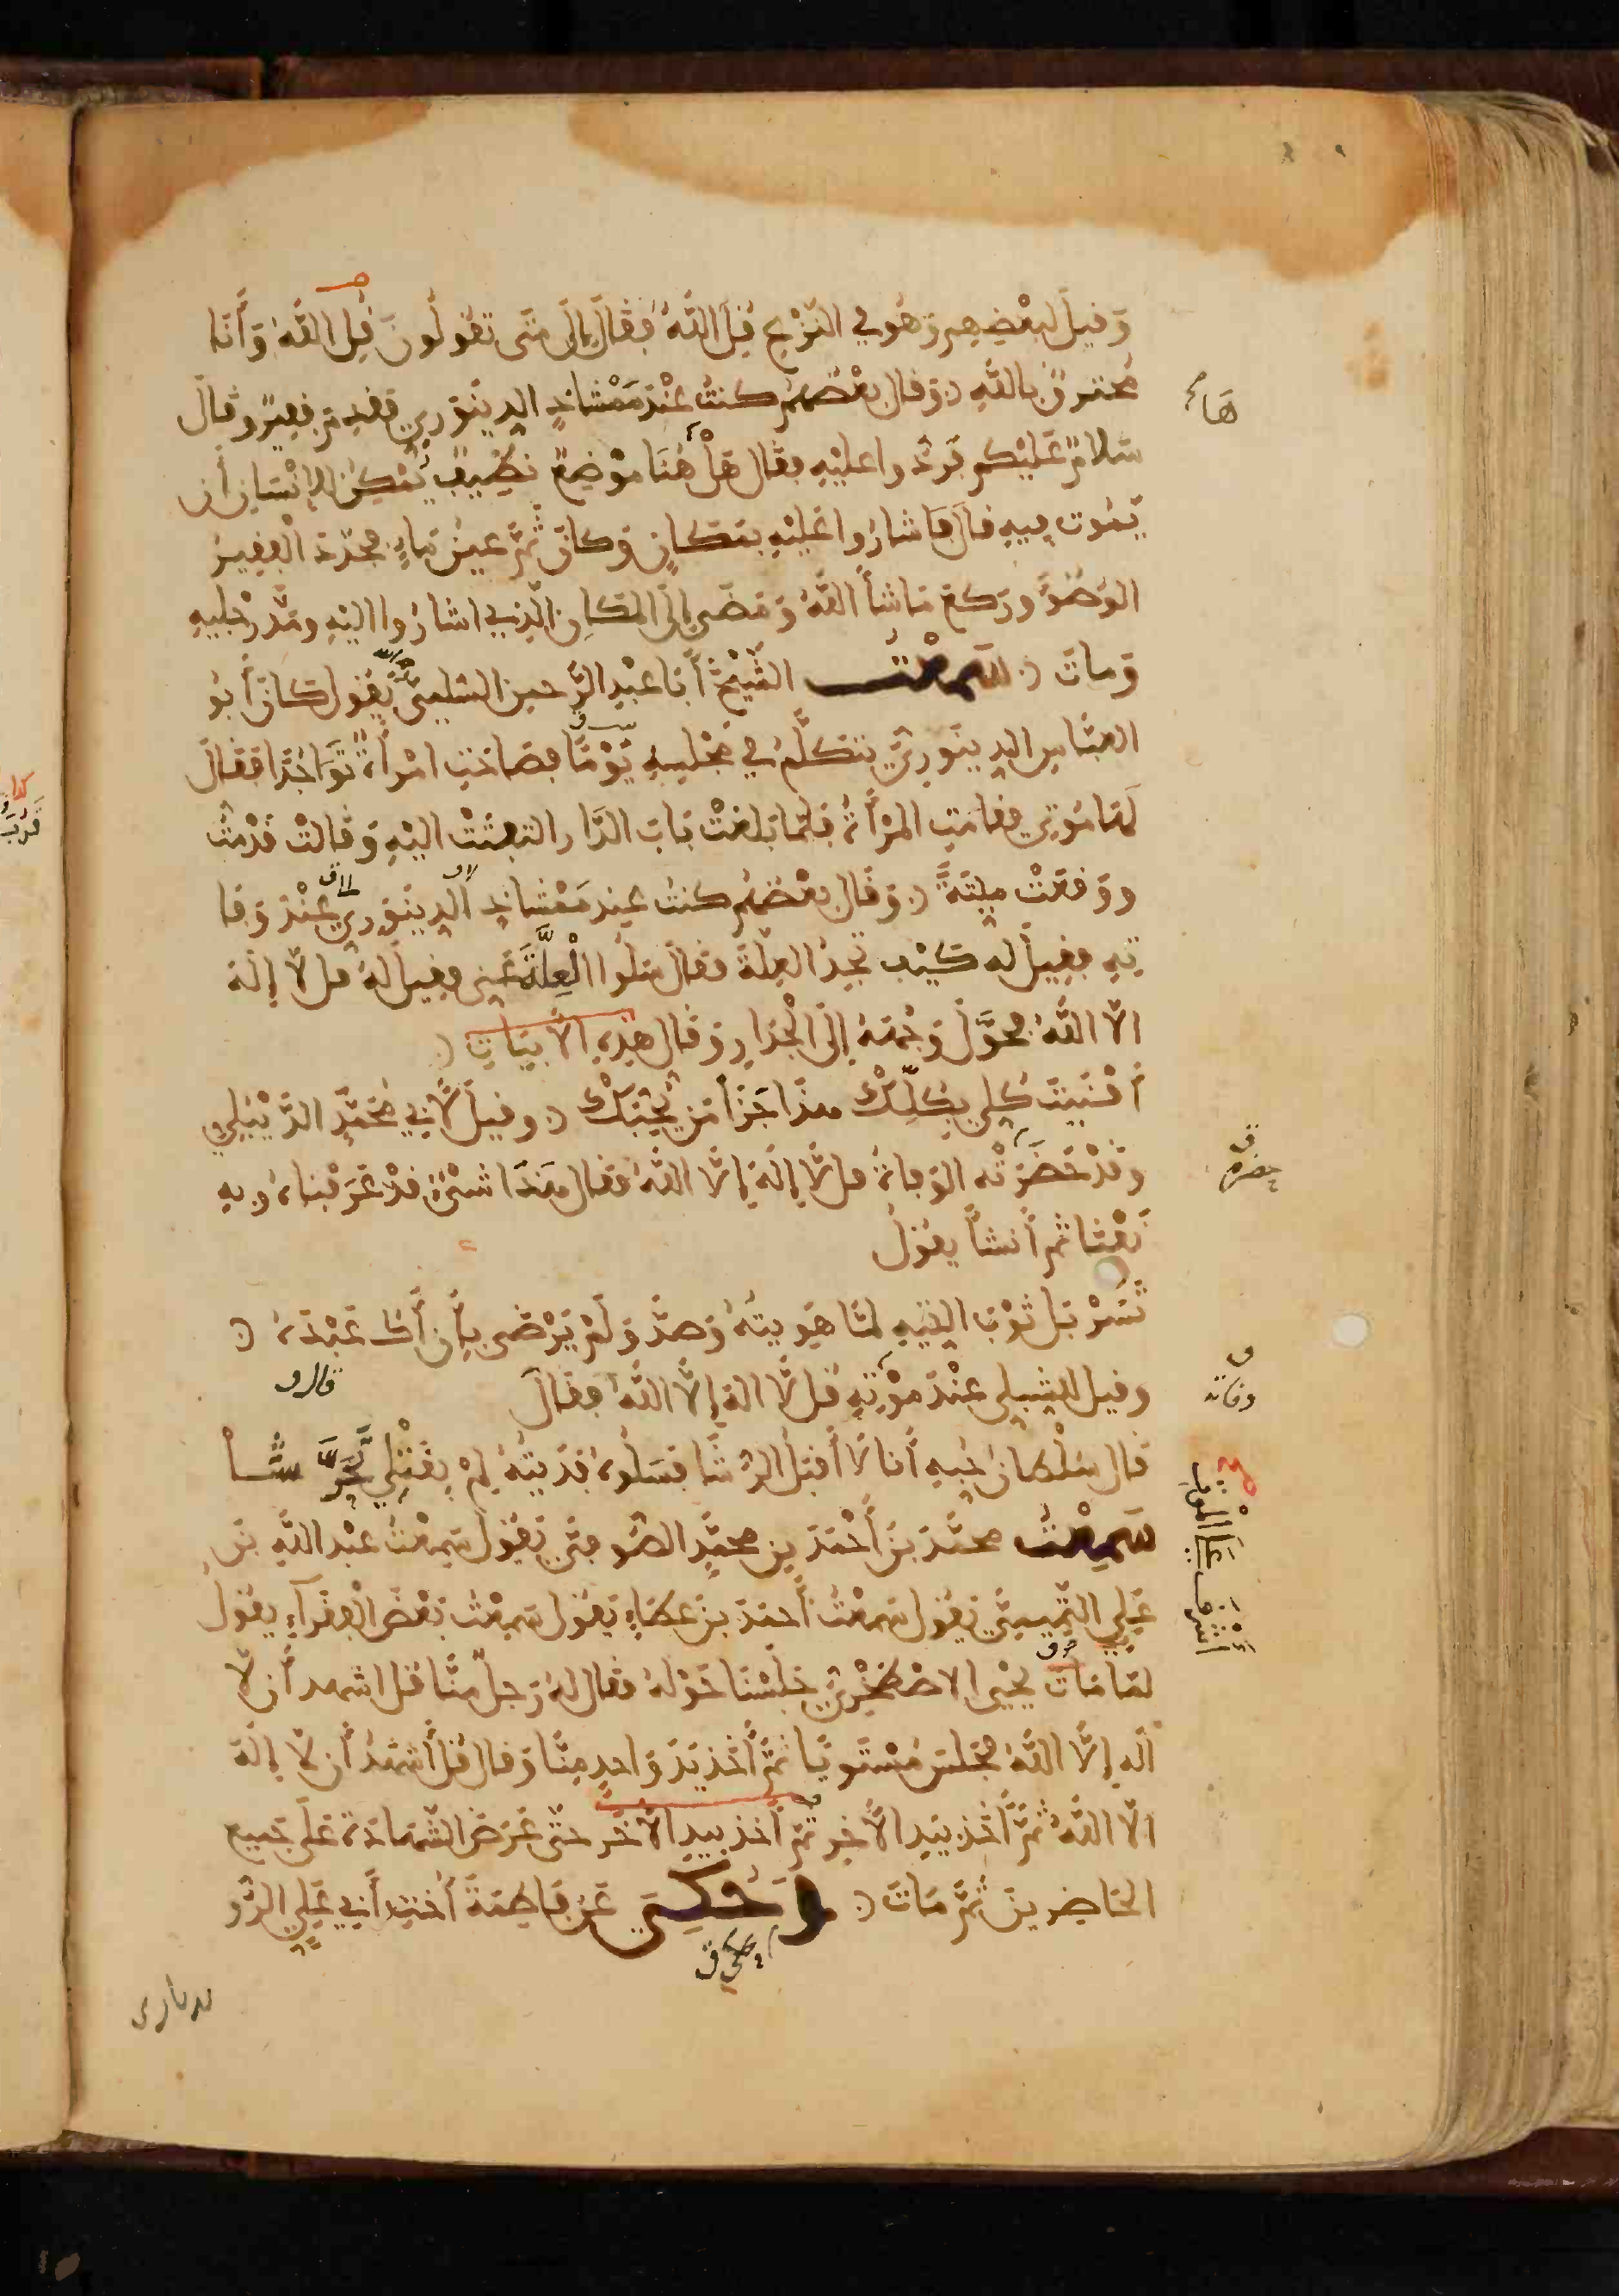 وَقيلَ لبَعْضِهِم وَهُو في النَّزْعِ قُلِ اللَّهُ فَقَالَ إِلَى مَتَى تَقُولُونَ قُلِ اللَّهُ وَأَنَا
مُحترقٌ بِاللَّهِ وَقال بَعْضُهُمْ كنتُ عِنْدَ مَمْشَاذٍ الدِينَوَرِي فقدِمَ فقيرٌ وقالَ
سَلامٌ عَلَيْكم فَرَدُّوا عليْهِ فقال هَلْ هُنَا مَوْضِعٌ نَظِيفٌ يُمْكِنُ الإِنْسَانِ أن
يَمُوتَ فِيهِ قالَ فَاشَارُوا عَلَيْهِ بمَكَانٍ وَكانَ ثَمَّ عينُ مَاءٍ فجدّدَ الْفقِيرُ
الوُضُوَّ وركعَ مَا شاءَ اللَّهُ وَمَضَى إِلَى المَكَانِ الَّذِي اشارُوا اليْهِ ومَدَّ رِجْليهِ
وَماتَ سَمعْتُ الشَّيْخَ أَبَا عَبْدِ الرَّحمنِ السُّلَمِيَّ يَقُول كَانَ أَبُو
العبَّاسِ الدِينَوَرِيُّ يتكلَّمُ في مَجْلِسِهِ يَوْمًا فصَاحَتِ امْرأَةٌ تَوَاجُدًا فَقَالَ
لَهَا مُوتِي فقامَتِ المَرْأَةُ فلَمَّا بَلغتْ بَابَ الدَّارِ التفتَتْ اليْهِ وَقَالتْ قَدْ مُتُّ
ووَقعَتْ ميِّتَةً وَقَال بَعْضُهُم كنتُ عِند مَمْشَاذٍ الدِينَوَرِي عِنْدَ وَفَا
تِهِ فقِيلَ له كَيْفَ تَجِدُ العِلَّةَ فقالَ سَلُوا الْعِلَّةَ عَنِّي فقيلَ لهُ قل لَا إلَهَ
الَّا اللَّهُ فحَوَّلَ وَجْهَهُ إِلَى الْجِدَارِ وَقَال هذِهِ الأَبْيَاتِ
أَفْنَيْتَ كُلِي بِكُلِّكْ هذَا جَزَا مَن يُحِبُّكْ وقيلَ لأَبِي مُحَمَّدٍ الدَّيْبُلِي
وقَدْ حَضَرَتْه الوَفاةُ قل لَا إلَهَ إلَّا اللَّهُ فقال هَذَا شَيْءٌ قَدْ عَرَفْناهُ وبِهِ
نَفْنَا ثم أَنشأَ يقولُ
تَسَرْبَلَ ثَوْبَ التِّيهِ لمَّا هَوِيتُهُ وَصدَّ وَلَمْ يَرْضَى بِأَن أَكُ عَبْدَهُ
وقيل للشبلي عِنْدَ مَوْتِهِ قل لَّا الهَ إلَّا اللَّهُ فقَالَ
قَال سُلْطانُ حُبِهِ أَنَا لَا أَقبَلُ الرُّشَا فسَلُوهُ فَدَيتُهُ لِمْ بِقَتْلِي تَحَرَّشَا
سَمِعْتُ محمَّدَ بْنَ أَحْمَدَ بنِ محمَّدٍ الصُّوفِيَّ يَقُولُ سَمِعْتُ عبْدَ اللَّهِ بْنَ
عَلِي التَّمِيمِيَّ يَقُول سَمِعْتُ أَحمَدَ بنَ عطَاءٍ يَقُول سَمِعْتُ بَعْضَ الْفقرَآءِ يقُول
لمَّا مَاتَ يَحْيَى الاصْطَخْرِيُّ جَلَسْنَا حَوْلَهُ فقال لهُ رَجلٌ مِّنَّا قُل اشهد أن لَا
اله إلَّا اللَّهُ فجَلسَ مُسْتَوِيًا ثُمَّ أَخَذَ يَدَ وَاحِدٍ مِنَّا وَقال قُلْ أَشْهَدُ أَن لَا إِلَهَ
الَّا اللَّهُ ثُمَّ أَخَذ بيَدِ الآخرِ ثُمَّ أَخذ بيدِ الآخَرِ حتَّى عَرَضَ الشَّهَادَةَ عَلَى جَمِيعِ
الحَاضِرِينَ ثمَّ مَاتَ وَحُكِيَ عَنْ فَاطِمَةَ أُختِ أَبِي عَلِي الرُّو
ذباري
هَا
حضره
وفاته
قال و
أشرف على الموت
يحكى